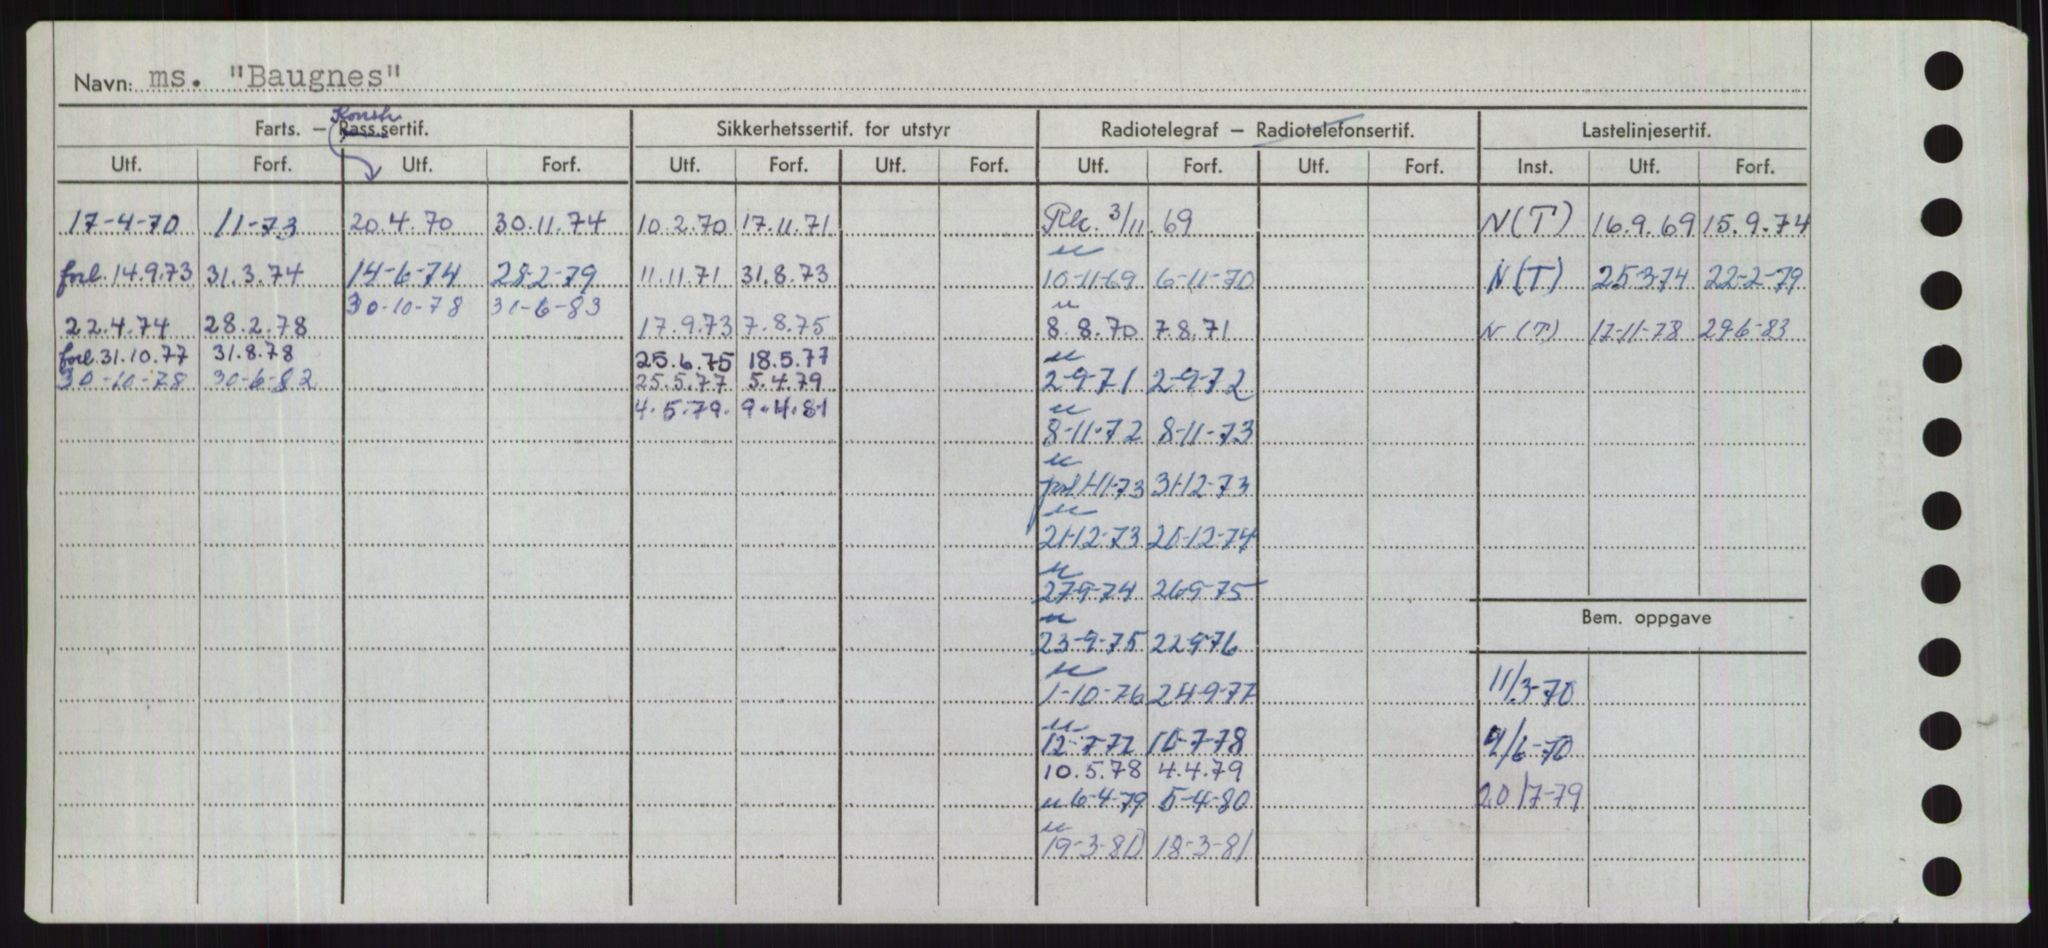 Navn: ms. "Baugnes"
Konstr
Farts. – Pass.sertif. Sikkerhetssertif. for utstyr Radiotelegraf – Radiotelefonsertif. Lastelinjesertif.
Utf. Forf. Utf. Forf. Utf. Forf. Utf. Forf. Utf. Forf. Utf. Forf. Inst. Utf. Forf.
17-4-70 11-73 20.4.70 30.11.74 10.2.70 17.11.71 3/11.69 N(T) 16.9.69 15.9.74
forl. 14.9.73 31.3.74 14-6-74 28-2-79 11.11.71 31.8.73 10-11-69 6-11-70 N(T) 25-3-74 22-2-79
30-10-78 30-6-83
22.4.74 28.2.78 17.9.73 7.8.75 8.8.70 7.8.71 N(T) 17-11-78 29-6-83
forl. 31.10.77 31.8.78 25.6.75 18.5.77
30-10-78 30-6-82 25.5.77 5.4.79 2-9-71 2-9-72
4.5.79. 9.4.81
8-11-72 8-11-73
31-12-73
21-12-73 20-12-74
27-9-74 26-9-75
Bem. oppgave
23-9-75 22-9-76
1-10-76 24-9-77 11/3-70
12-7-77 10-7-78 4/6-70
10.5.78 4.4.79
6-4-79 5-4-80 20/7-79
19-3-80 18-3-81